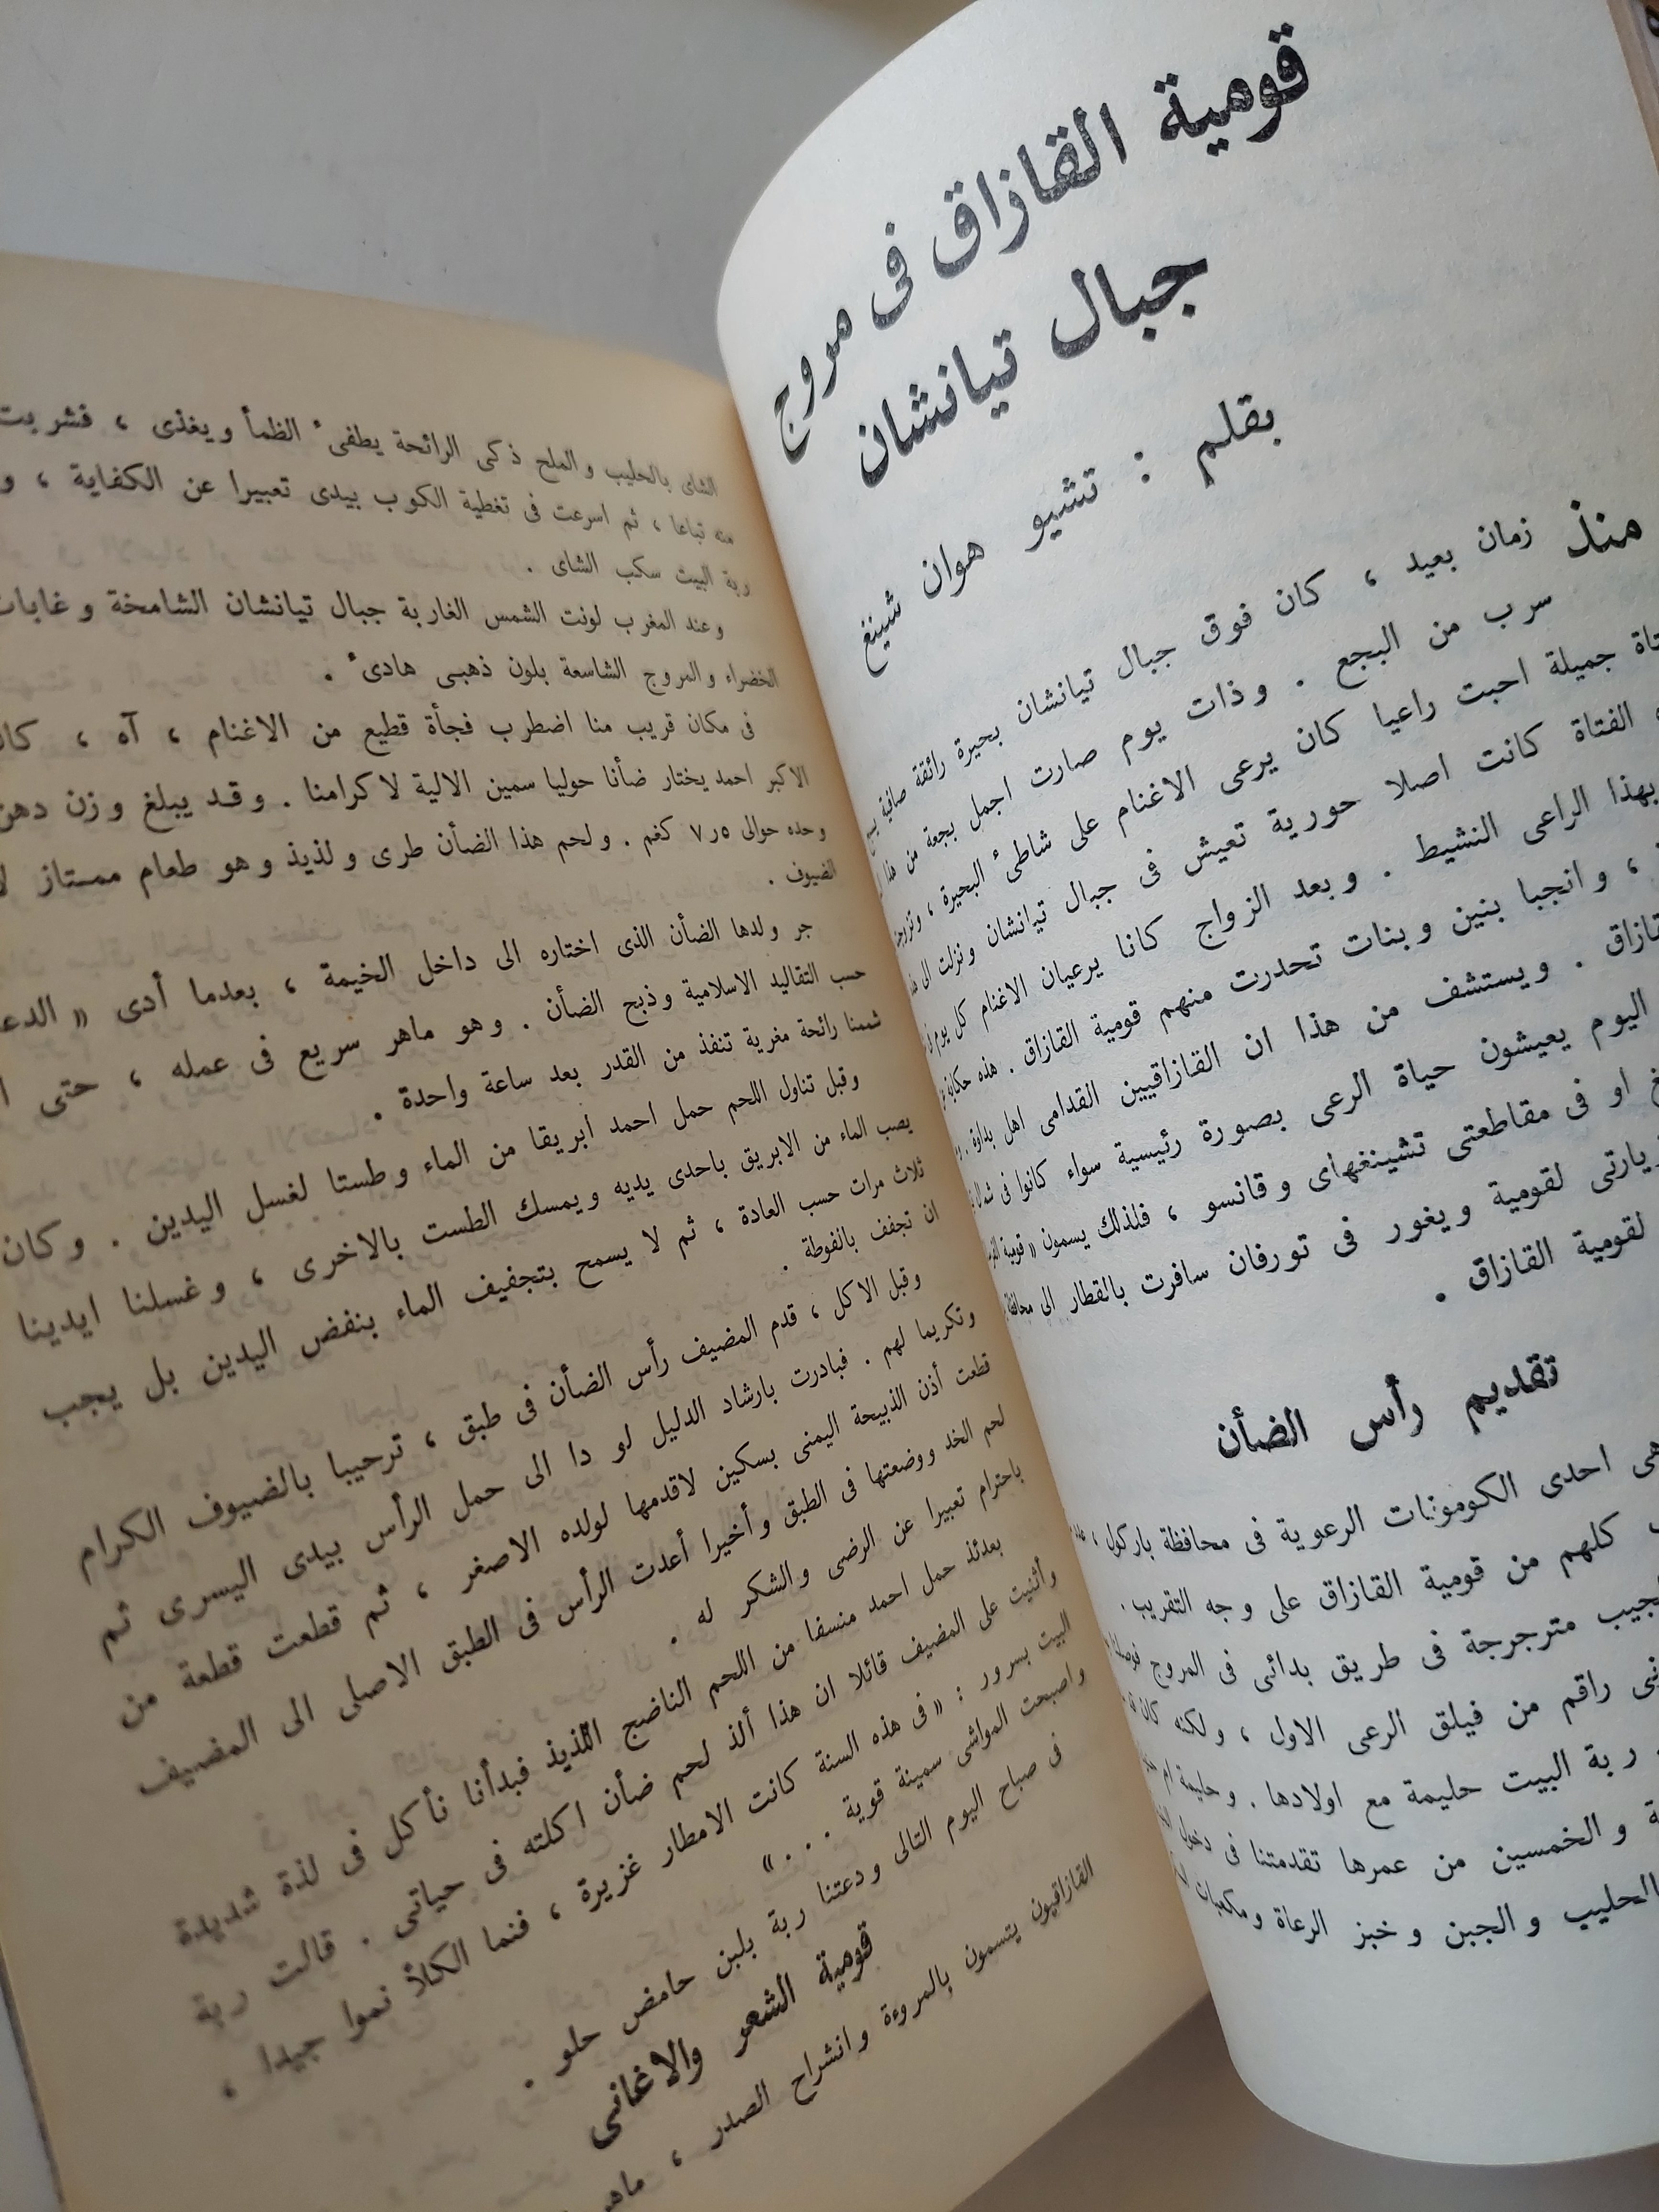 قومية القازاق فى مروج
جبال تيانشان
بقلم : تشيو هوان شينغ
منذ زمان بعيد ، كان فوق جبال تيانشان بحيرة رائقة صافية
سرب من البجع . وذات يوم صارت اجمل بجعة من هذا
جميلة احبت راعيا كان يرعى الاغنام على شاطىء البحيرة ، وتزوجت
الفتاة كانت اصلا حورية تعيش فى جبال تيانشان ونزلت الى
بهذا الراعى النشيط . وبعد الزواج كانا يرعيان الاغنام كل يوم
، وانجبا بنين وبنات تحدرت منهم قومية القازاق . هذه حكاية
. ويستشف من هذا ان القازاقيين القدامى اهل بداوة .
اليوم يعيشون حياة الرعى بصورة رئيسية سواء كانوا فى
او فى مقاطعتى تشينغهاى وقانسو ، فلذلك يسمون « قومية
لقومية ويغور فى تورفان سافرت بالقطار الى محافظة
لقومية القازاق .
تقديم رأس الضأن
احدى الكومونات الرعوية فى محافظة باركول ،
كلهم من قومية القازاق على وجه التقريب .
مترجرجة فى طريق بدائى فى المروج
راقم من فيلق الرعى الاول ، ولكنه كان
ربة البيت حليمة مع اولادها . وحليمة ام
والخمسين من عمرها تقدمتنا فى دخول
الحليب والجبن وخبز الرعاة ومكعبات
الشاى بالحليب والملح ذكى الرائحة يطفىء الظمأ ويغذى ، فشربت
منه تباعا ، ثم اسرعت فى تغطية الكوب بيدى تعبيرا عن الكفاية ،
ربة البيت سكب الشاى .
وعند المغرب لونت الشمس الغاربة جبال تيانشان الشامخة وغابات
الخضراء والمروج الشاسعة بلون ذهبى هادىء .
فى مكان قريب منا اضطرب فجأة قطيع من الاغنام ، آه ،
الاكبر احمد يختار ضأنا حوليا سمين الالية لاكرامنا . وقد يبلغ وزن
وحده حوالى ٧٫٥ كغم . ولحم هذا الضأن طرى ولذيذ وهو طعام ممتاز
الضيوف .
جر ولدها الضأن الذى اختاره الى داخل الخيمة ، بعدما أدى «
حسب التقاليد الاسلامية وذبح الضأن . وهو ماهر سريع فى عمله ، حتى
شممنا رائحة مغرية تنفذ من القدر بعد ساعة واحدة .
وقبل تناول اللحم حمل احمد ابريقا من الماء وطستا لغسل اليدين . وكان
يصب الماء من الابريق باحدى يديه ويمسك الطست بالاخرى ، وغسلنا ايدينا
ثلاث مرات حسب العادة ، ثم لا يسمح بتجفيف الماء بنفض اليدين بل يجب
ان تجفف بالفوطة .
وقبل الاكل ، قدم المضيف رأس الضأن فى طبق ، ترحيبا بالضيوف الكرام
وتكريما لهم . فبادرت بارشاد الدليل لو دا الى حمل الرأس بيدى اليسرى ثم
قطعت أذن الذبيحة اليمنى بسكين لاقدمها لولده الاصغر ، ثم قطعت قطعة من
لحم الخد ووضعتها فى الطبق وأخيرا أعدت الرأس فى الطبق الاصلى الى المضيف
باحترام تعبيرا عن الرضى والشكر له .
بعدئذ حمل احمد منسفا من اللحم الناضج اللذيذ فبدأنا نأكل فى لذة شديدة
وأثنيت على المضيف قائلا ان هذا ألذ لحم ضأن اكلته فى حياتى . قالت ربة
البيت بسرور : « فى هذه السنة كانت الامطار غزيرة ، فنما الكلأ نموا جيدا ،
واصبحت المواشى سمينة قوية . . . »
فى صباح اليوم التالى ودعتنا ربة بلبن حامض حلو .
قومية الشعر والاغانى
القازاقيون يتسمون بالمروءة وانشراح الصدر ،